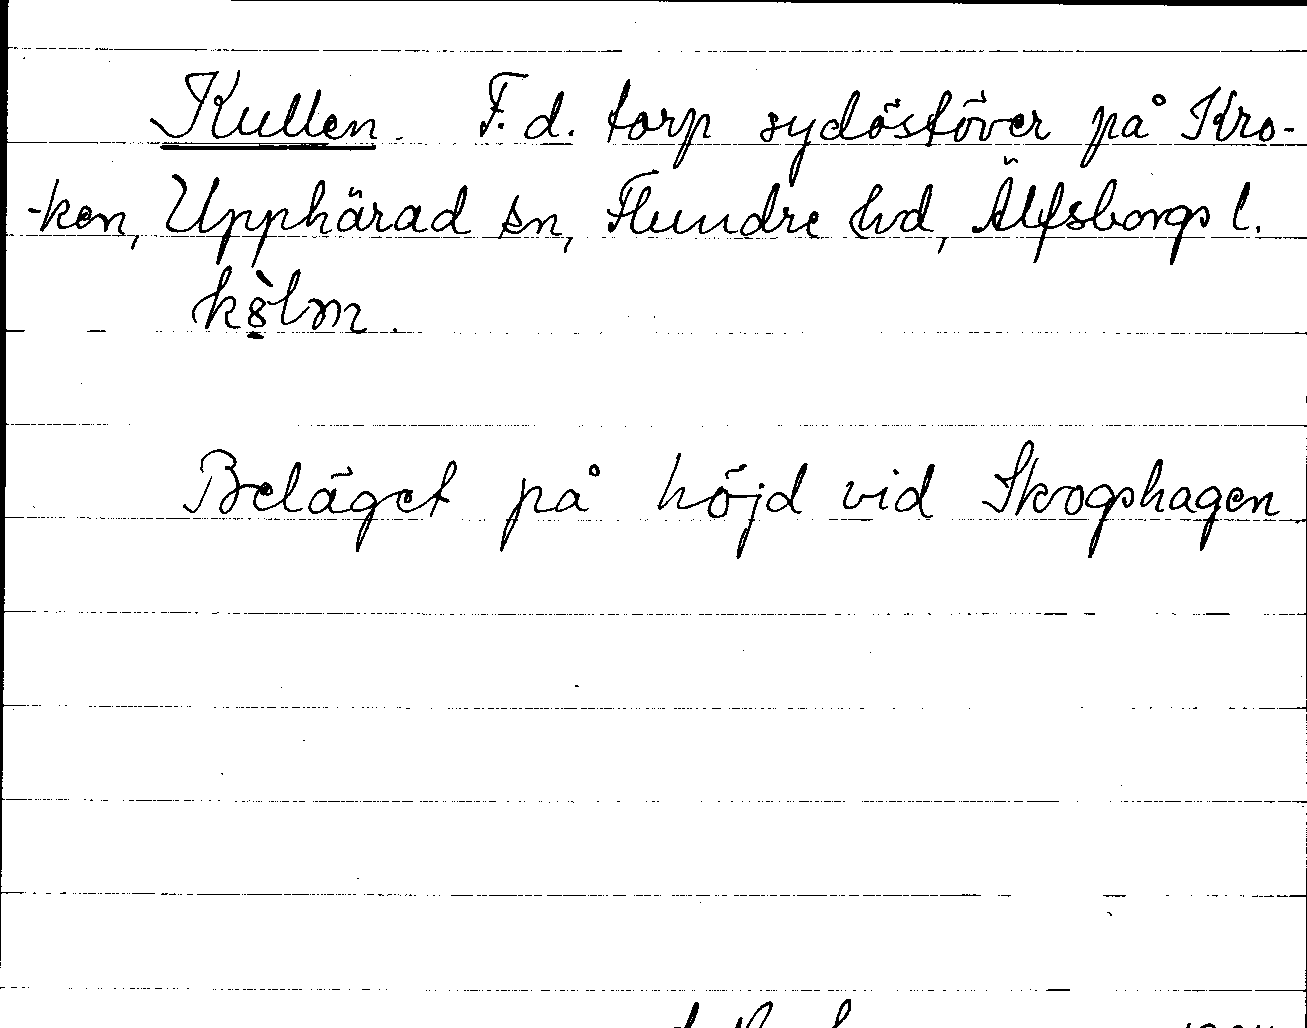 Kullen. F.d. torp sydöstöver på Kro-
-ken, Upphärad sn, Flundre hd, Älfsborgs l.
kö̀lm.
Beläget på höjd vid Skogshagen